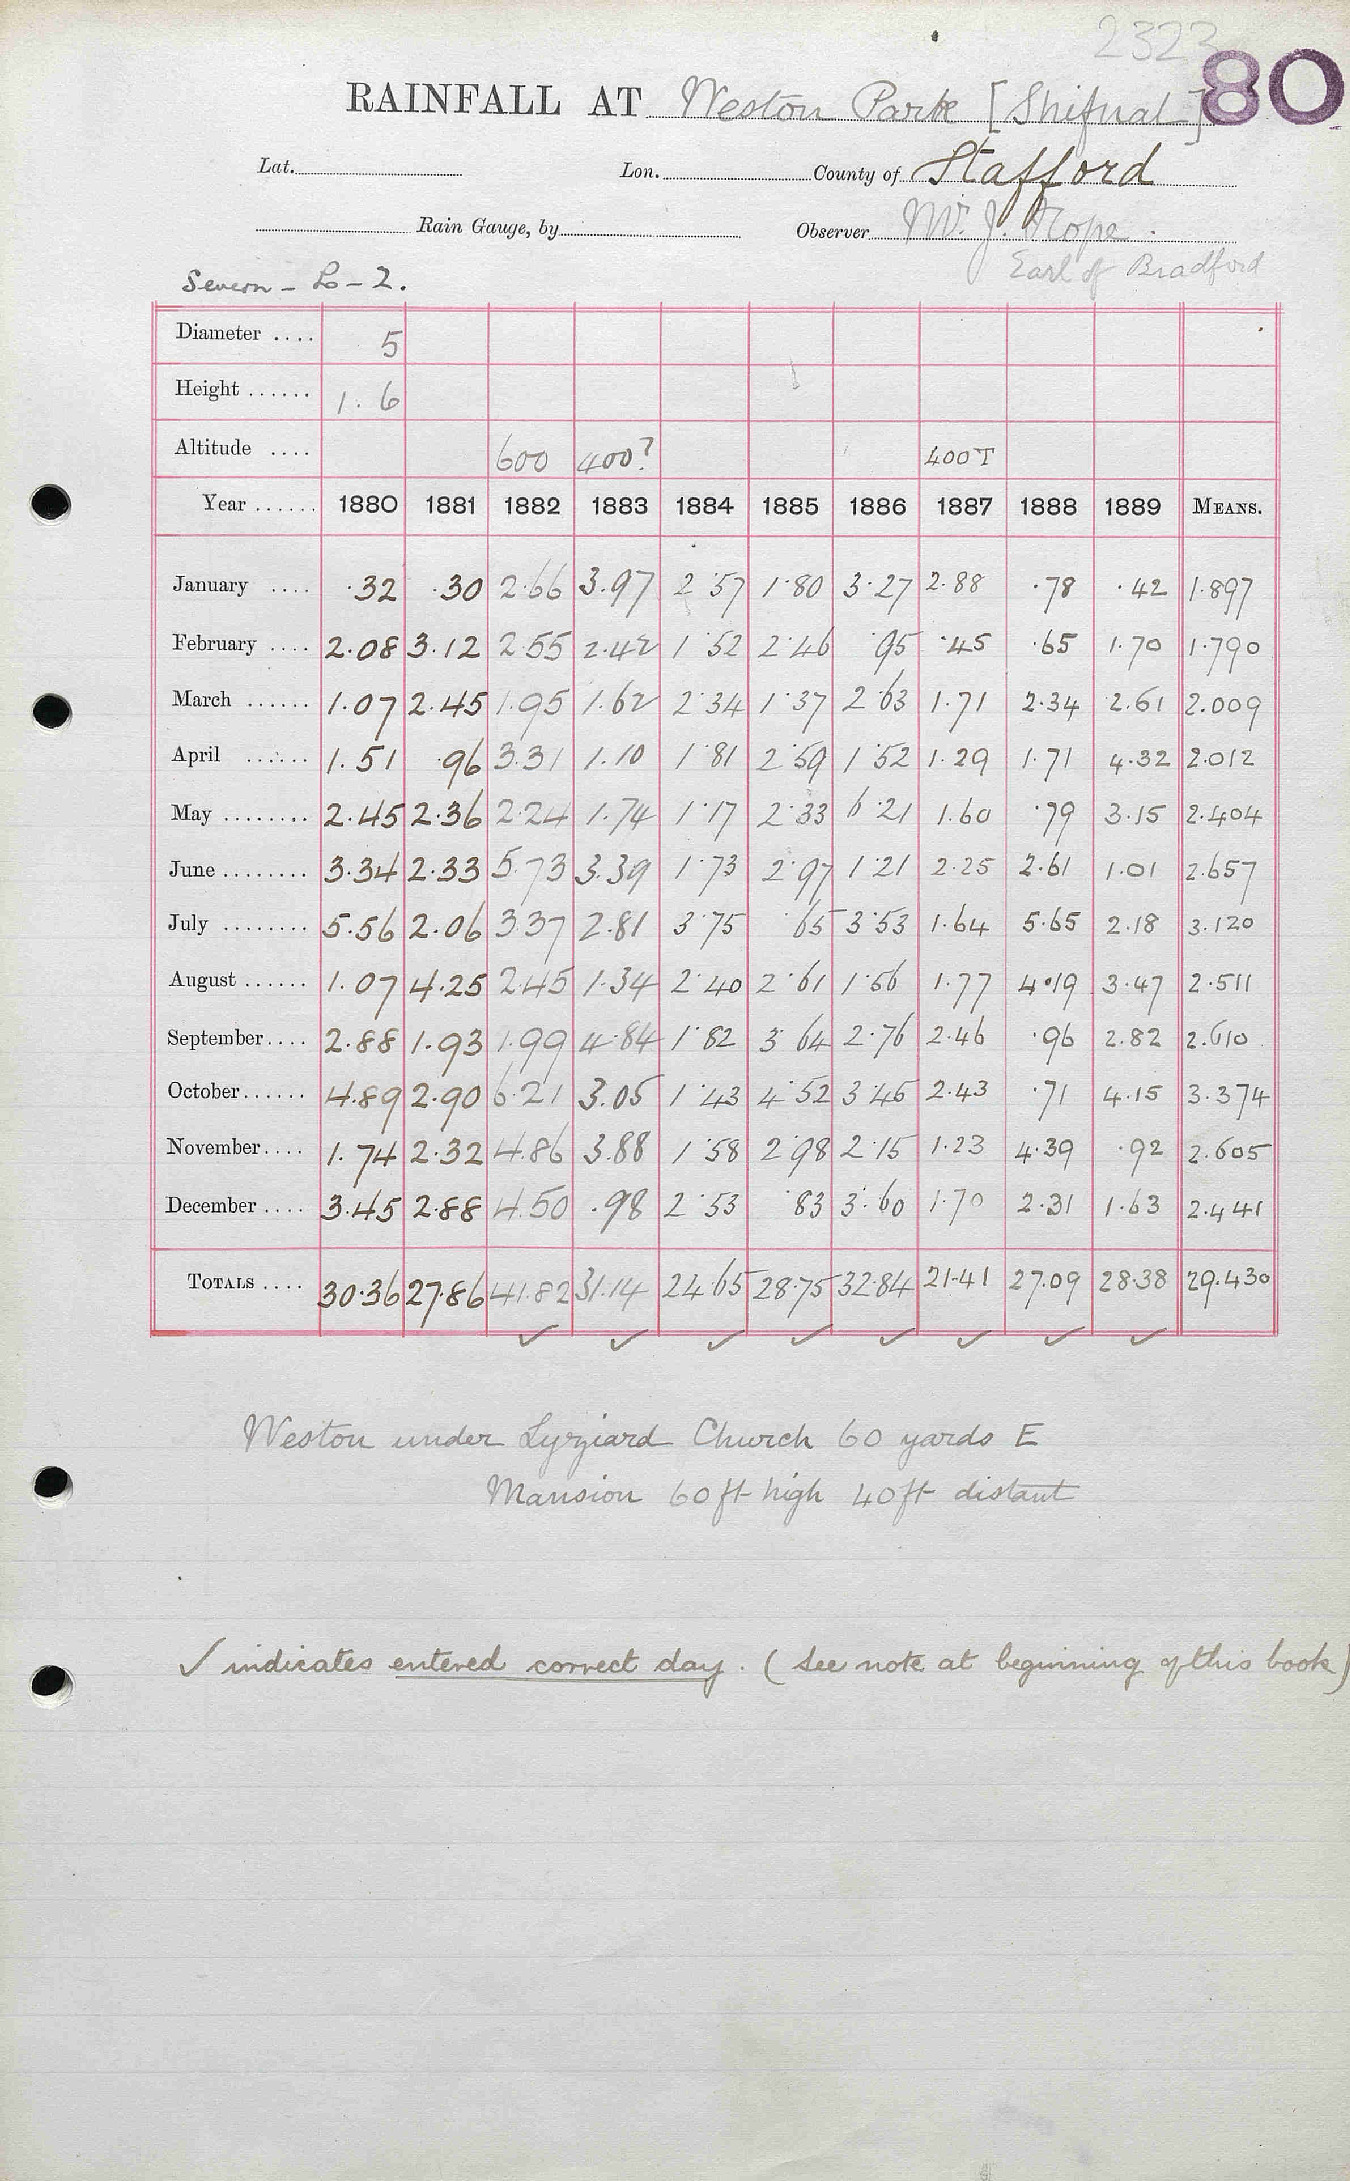 2323
80
RAINFALL AT Weston Park [Shifnal]
Lat. Lon. County of Stafford
Rain Gauge, by Observer Mr. J. Hope.
Earl of Bradford
Severn - Lo - 2.
Diameter .... 5
Height ...... 1. 6
Altitude .... 600 400? 400T
Year ...... 1880 1881 1882 1883 1884 1885 1886 1887 1888 1889 MEANS.
January .... ·32 ·30 2·66 3.97 2·57 1·80 3·27 2·88 ·78 ·42 1·897
February .... 2·08 3·12 2·55 2·42 1·52 2·46 ·95 ·45 ·65 1·70 1·790
March ...... 1·07 2·45 1·95 1·62 2·34 1·37 2·63 1·71 2·34 2·61 2·009
April ...... 1·51 ·96 3·31 1·10 1·81 2·59 1·52 1·29 1·71 4·32 2·012
May ........ 2·45 2·36 2·24 1·74 1·17 2·33 6·21 1·60 ·79 3·15 2·404
June ........ 3·34 2·33 5·73 3·39 1·73 2·97 1·21 2·25 2·61 1·01 2·657
July ........ 5·56 2·06 3·37 2·81 3·75 ·65 3·53 1·64 5·65 2·18 3·120
August ...... 1·07 4·25 2·45 1·34 2·40 2·61 1·56 1·77 4·19 3·47 2·511
September .... 2·88 1·93 1·99 4·84 1·82 3·64 2·76 2·46 ·96 2·82 2·610
October ...... 4·89 2·90 6·21 3·05 1·43 4·52 3·45 2·43 ·71 4·15 3·374
November .... 1·74 2·32 4·86 3·88 1·58 2·98 2·15 1·23 4·39 ·92 2·605
December .... 3·45 2·88 4·50 ·98 2·53 ·83 3·60 1·70 2·31 1·63 2·441
TOTALS .... 30·36 27·86 41·82 31·14 24·65 28·75 32·84 21·41 27·09 28·38 29·430
✓ ✓ ✓ ✓ ✓ ✓ ✓ ✓
Weston under Lyziard Church 60 yards E
Mansion 60 ft high 40 ft distant
✓ indicates entered correct day. (See note at beginning of this book)